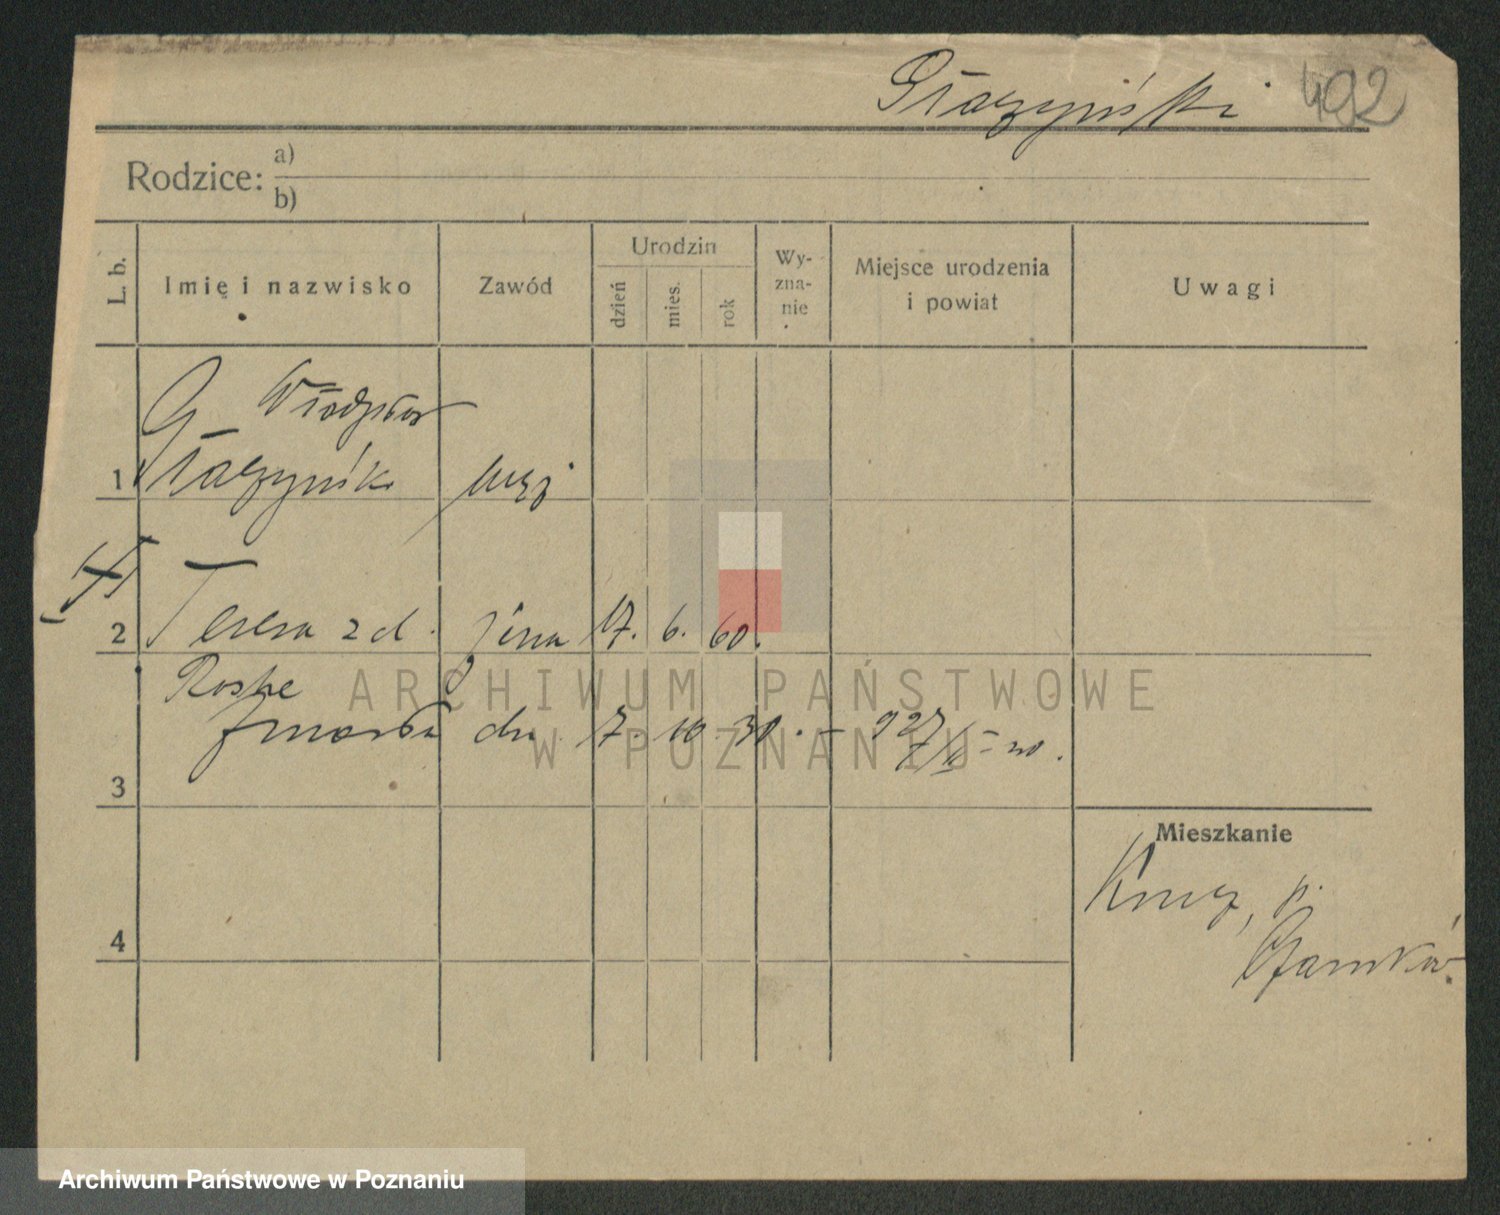 Głaczyński 492
Rodzice: a)
b)
L. b. Imię i nazwisko Zawód Urodzin dzień mies. rok Wy-zna-nie Miejsce urodzenia i powiat Uwagi
Głaczyński
1 mąż
2 Teresa z d. żona 17. 6. 60.
zmarła dn. 7. 10. 30.
3
Mieszkanie
p.
Czarnków.
4
ARCHIWUM PAŃSTWOWE
W POZNANIU
Archiwum Państwowe w Poznaniu